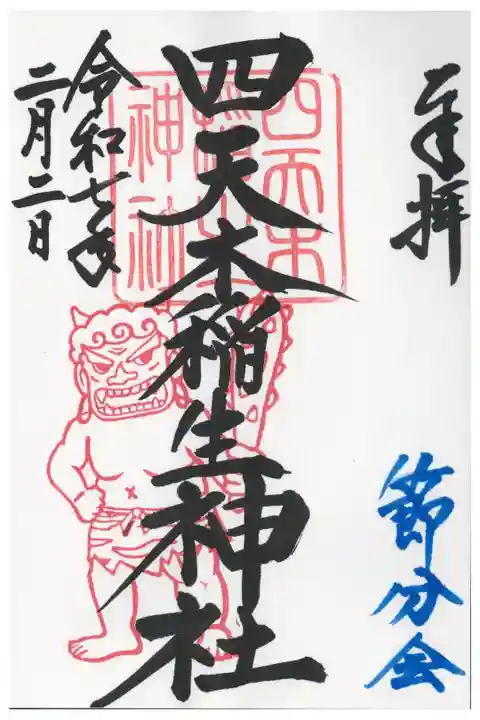 奉拝
節分会
四天木稲生神社
令和七年
二月二日